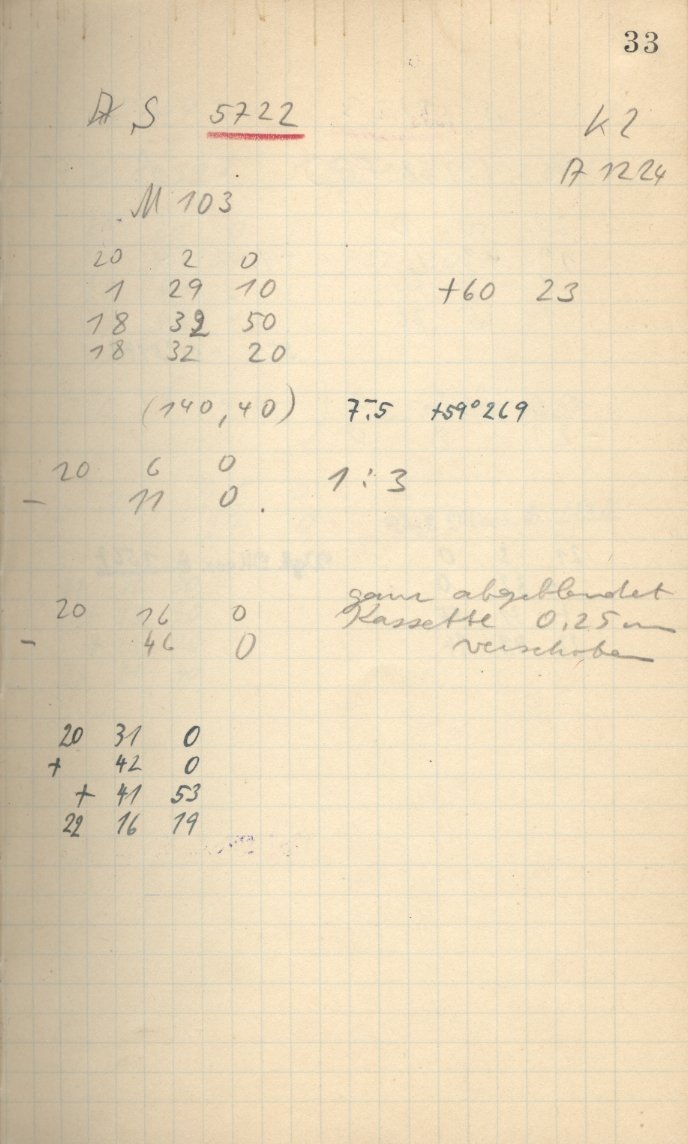 33
A S 5722
K 2
A 1224
M 103
20 2 0
1 29 10 +60 23
18 32 50
18 32 20
(140, 40) 7.5 +59° 269
20 6 0 1 : 3
- 11 0.
20 16 0 ganz abgeblendet
Kassette 0,25 m
- 46 0 verschoben
20 31 0
+ 42 0
+ 41 53
22 16 19